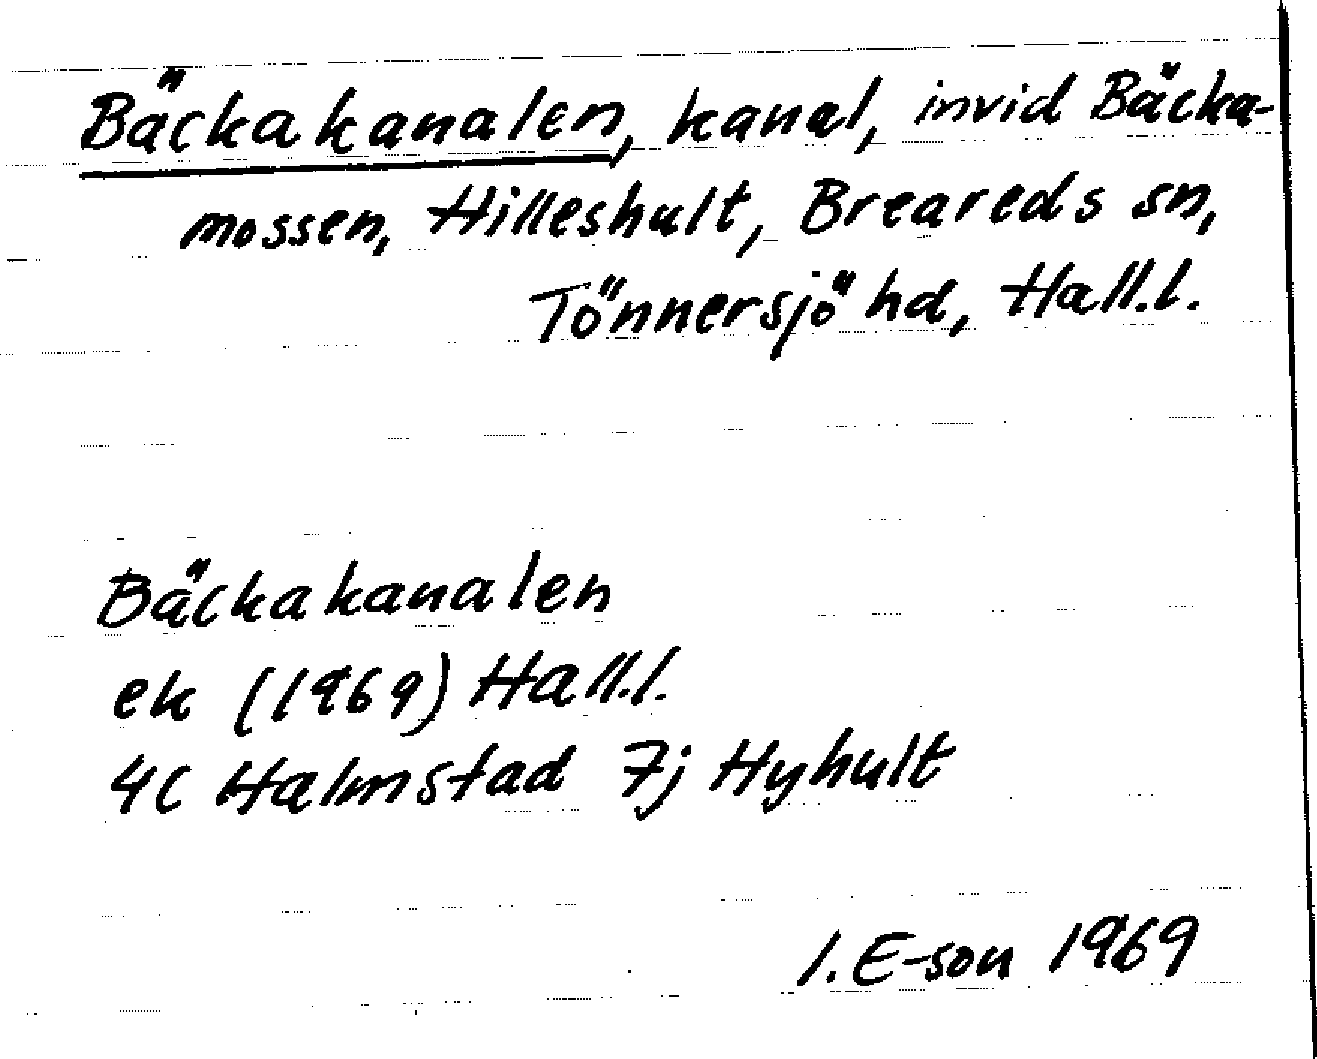 Bäckakanalen, kanal, invid Bäcka-
mossen, Hilleshult, Breareds sn,
Tönnersjö hd, Hall.l.
Bäckakanalen
ek (1969) Hall.l.
4C Halmstad 7j Hyhult
I. E-son 1969